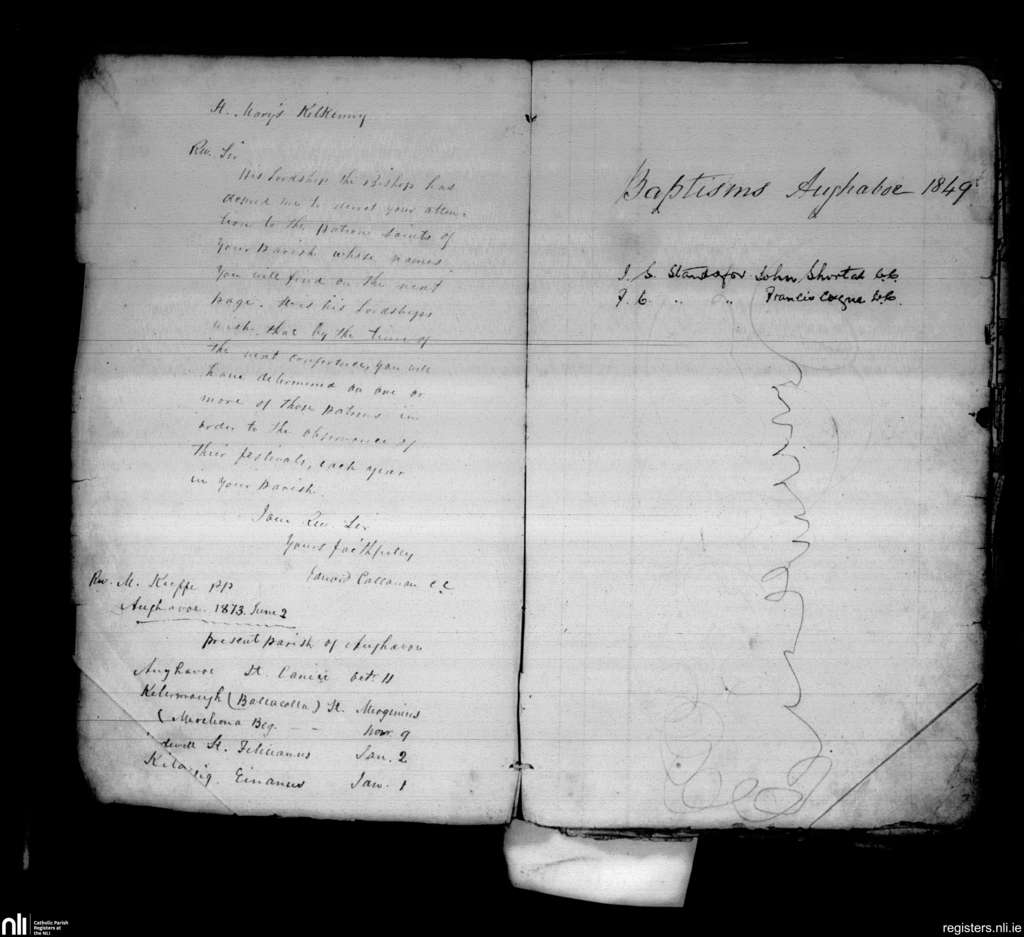 St. Mary's Kilkenny
Rev. Sir
His Lordship the Bishop has
desired me to direct your atten-
tion to the patron saints of
your parish whose names
you will find on the next
page. It is his Lordships
wish that by the time of
the next conference, you will
have determined on one or
more of those patrons in
order to the observance of
their festivals, each year
in your parish.
I am Rev. Sir
Yours faithfully
Edward Callanan c.c.
Rev. M. Keeffe pp
Aughavoe. 1873. June 2
present parish of Aughavoe
Aughavoe St. Canice Oct. 11
(Ballacolla) St.
Beg. - - Nov. 9
St. Felicianus Jan. 2
Jan. 1
Baptisms Aughaboe 1849
J. S. Stands for John Shortal C.C.
F. C. „ „ Francis Coyne C.C.
nli
Catholic Parish
Registers at
the NLI
registers.nli.ie